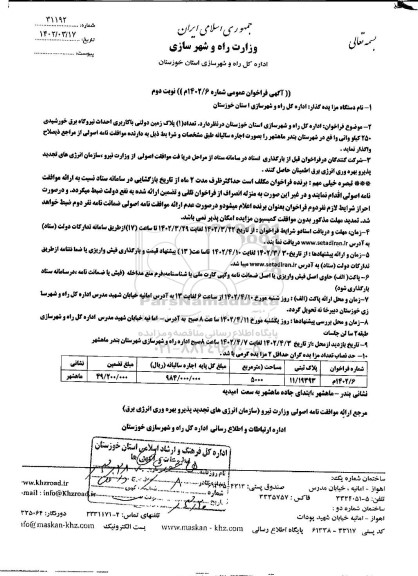 جمهوری اسلامی ایران
بسمه تعالی
وزارت راه و شهر سازی
اداره کل راه و شهرسازی استان خوزستان
شماره: ۳۱۱۹۲
تاریخ: ۱۴۰۲/۰۳/۱۷
پیوست:
(( آگهی فراخوان عمومی شماره ۱۴۰۲/۶م )) نوبت دوم
۱- نام دستگاه مزایده گذار: اداره کل راه و شهرسازی استان خوزستان
۲- موضوع فراخوان: اداره کل راه و شهرسازی استان خوزستان درنظردارد، تعداد(۱) پلاک زمین دولتی باکاربری احداث نیروگاه برق خورشیدی
۲۵۰ کیلو واتی واقع در شهرستان بندر ماهشهر را بصورت اجاره سالیانه طبق مشخصات و شرط ذیل به دارنده موافقت نامه اصولی از مراجع ذیصلاح
واگذار نماید.
۳- شرکت کنندگان درفراخوان قبل از بارگذاری اسناد در سامانه ستاد از مراحل دریافت موافقت اصولی از وزارت نیرو ،سازمان انرژی های تجدید
پذیرو بهره وری انرژی برق اطمینان حاصل کنند.
*** تبصره خیلی مهم : برنده فراخوان مکلف است حداکثرظرف مدت ۲ ماه از تاریخ بازگشایی در سامانه ستاد نسبت به ارائه موافقت
نامه اصولی اقدام نمایند و در غیر این صورت به منزله انصراف از فراخوان تلقی و تضمین ارائه شده به نفع دولت ضبط میگردد. و درصورت
احراز شرایط لازم نفردوم فراخوان بعنوان برنده اعلام میشودو درصورت عدم ارائه موافقت نامه اصولی ضمانت نامه نفر دوم ضبط خواهد
شد. تمدید مهلت مذکور بدون موافقت کمیسیون مزایده امکان پذیر نمی باشد.
۴- زمان، مهلت و دریافت اسنادو شرایط فراخوان : از تاریخ ۱۴۰۲/۳/۲۲ لغایت ۱۴۰۲/۳/۲۹ تا ساعت (۱۷)ازطریق سامانه تدارکات دولت (ستاد)
به آدرس www.setadiran.ir دریافت نما یند.
۵- زمان و ارائه پیشنهادها : از تاریخ ۱۴۰۲/۳/۳۰ لغایت ۱۴۰۲/۴/۱۰ تا ساعت( ۱۳ ) پیشنهاد قیمت و بارگذاری فیش واریزی یا ضما نتنامه ازطریق
تدارکات دولت (ستاد) به آدرس www.setadiran.ir میبا شد.
۶- پاکت( الف) حاوی اصل فیش واریزی یا اصل ضمانت نامه وکپی کارت ملی یا شناسنامه،فرم منع مداخله (فیش یا ضمانت نامه درسامانه ستاد
بارگذاری شود)
۷- زمان و محل ارائه پاکت (الف) : روز شنبه مورخ ۱۴۰۲/۴/۱۰ از ساعت ۸ لغایت ۱۳ به آدرس امانیه خیابان شهید مدرس اداره کل راه و شهرسا
زی خوزستان دبیرخا نه تحویل گردد.
۸- زمان و محل بررسی پیشنهادها : روز یکشنبه مورخ ۱۴۰۲/۴/۱۱ ساعت ۸ صبح به آدرس- امانیه خیابان شهید مدرس اداره کل راه و شهرسازی
طبقه۲ سا لن جلسات
۹- تاریخ بازدید ازمحل :از تاریخ ۱۴۰۲/۴/۳ لغایت ۱۴۰۲/۴/۷ ساعت ۸صبح اداره راه و شهرسازی شهرستان بندر ماهشهر
۱۰- حد نصاب تعداد مزا یده گران حداقل ۲ مزا یده گرمی با شد.
شماره فراخوان پلاک ثبتی مساحت (مترمربع) مبلغ کل پایه اجاره سالیانه (ریال) مبلغ تضمین نشانی
۱۴۰۲/۶م ۱۱/۱۹۳۹۳ ۵۰۰۰ ۹۸۴/۰۰۰/۰۰۰ ۴۹/۲۰۰/۰۰۰ ماهشهر
نشانی بندر – ماهشهر ،ابتدای جاده ماهشهر به سمت امیدیه
مرجع ارائه موافقت نامه اصولی وزارت نیرو (سازمان انرژی های تجدید پذیرو بهره وری انرژی برق)
اداره ارتباطات و اطلاع رسانی اداره کل راه و شهرسازی خوزستان
اداره کل فرهنگ و ارشاد اسلامی استان خوزستان
شماره
تاریخ
ساختمان شماره یک:
اهواز - امانیه ، خیابان مدرس
تلفن: ۵-۳۳۳۴۰۵۱ فاکس : ۳۳۳۵۷۵۷ صندوق پستی:
ساختمان شماره دو :
اهواز - امانیه خیابان شهید پودات
کد پستی ۳۳۱۱۷ - ۶۱۳۳۸ پایگاه اطلاع رسانی www.maskan-khz.com پست الکترونیک
تلفنهای تماس: ۴-۳۳۳۱۱۷۱
info@maskan-khz.com